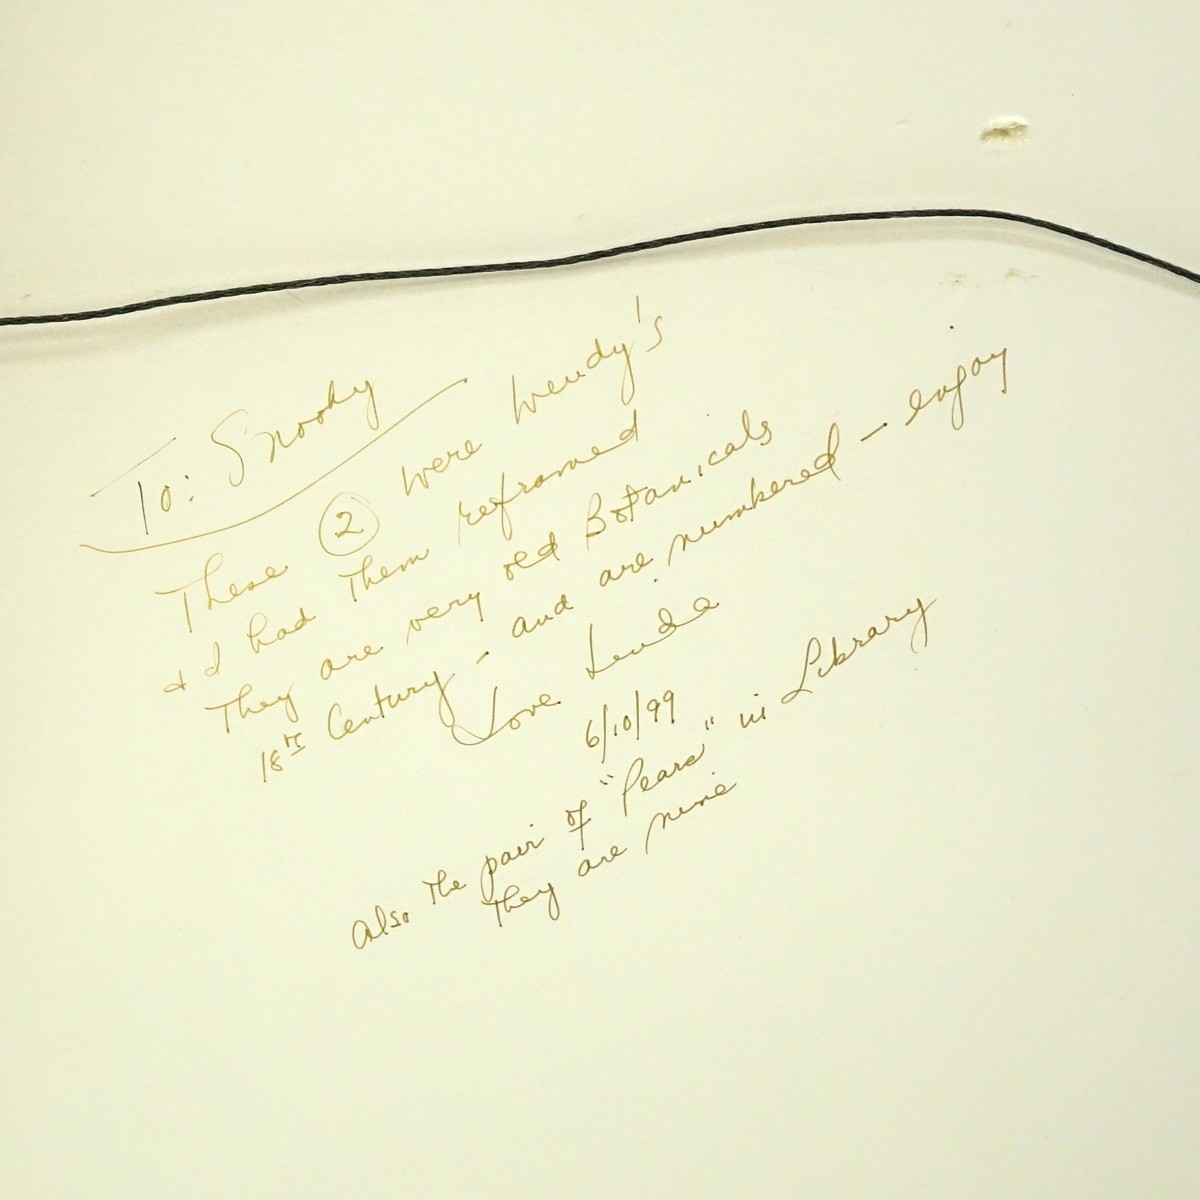 To: Snooky
These 2 were Wendy's
& I had Them reframed
They are very old Botanicals
18th Century - and are numbered - enjoy
Love Linda
6/10/99
Also The pair of "Pears" in Library
They are mine